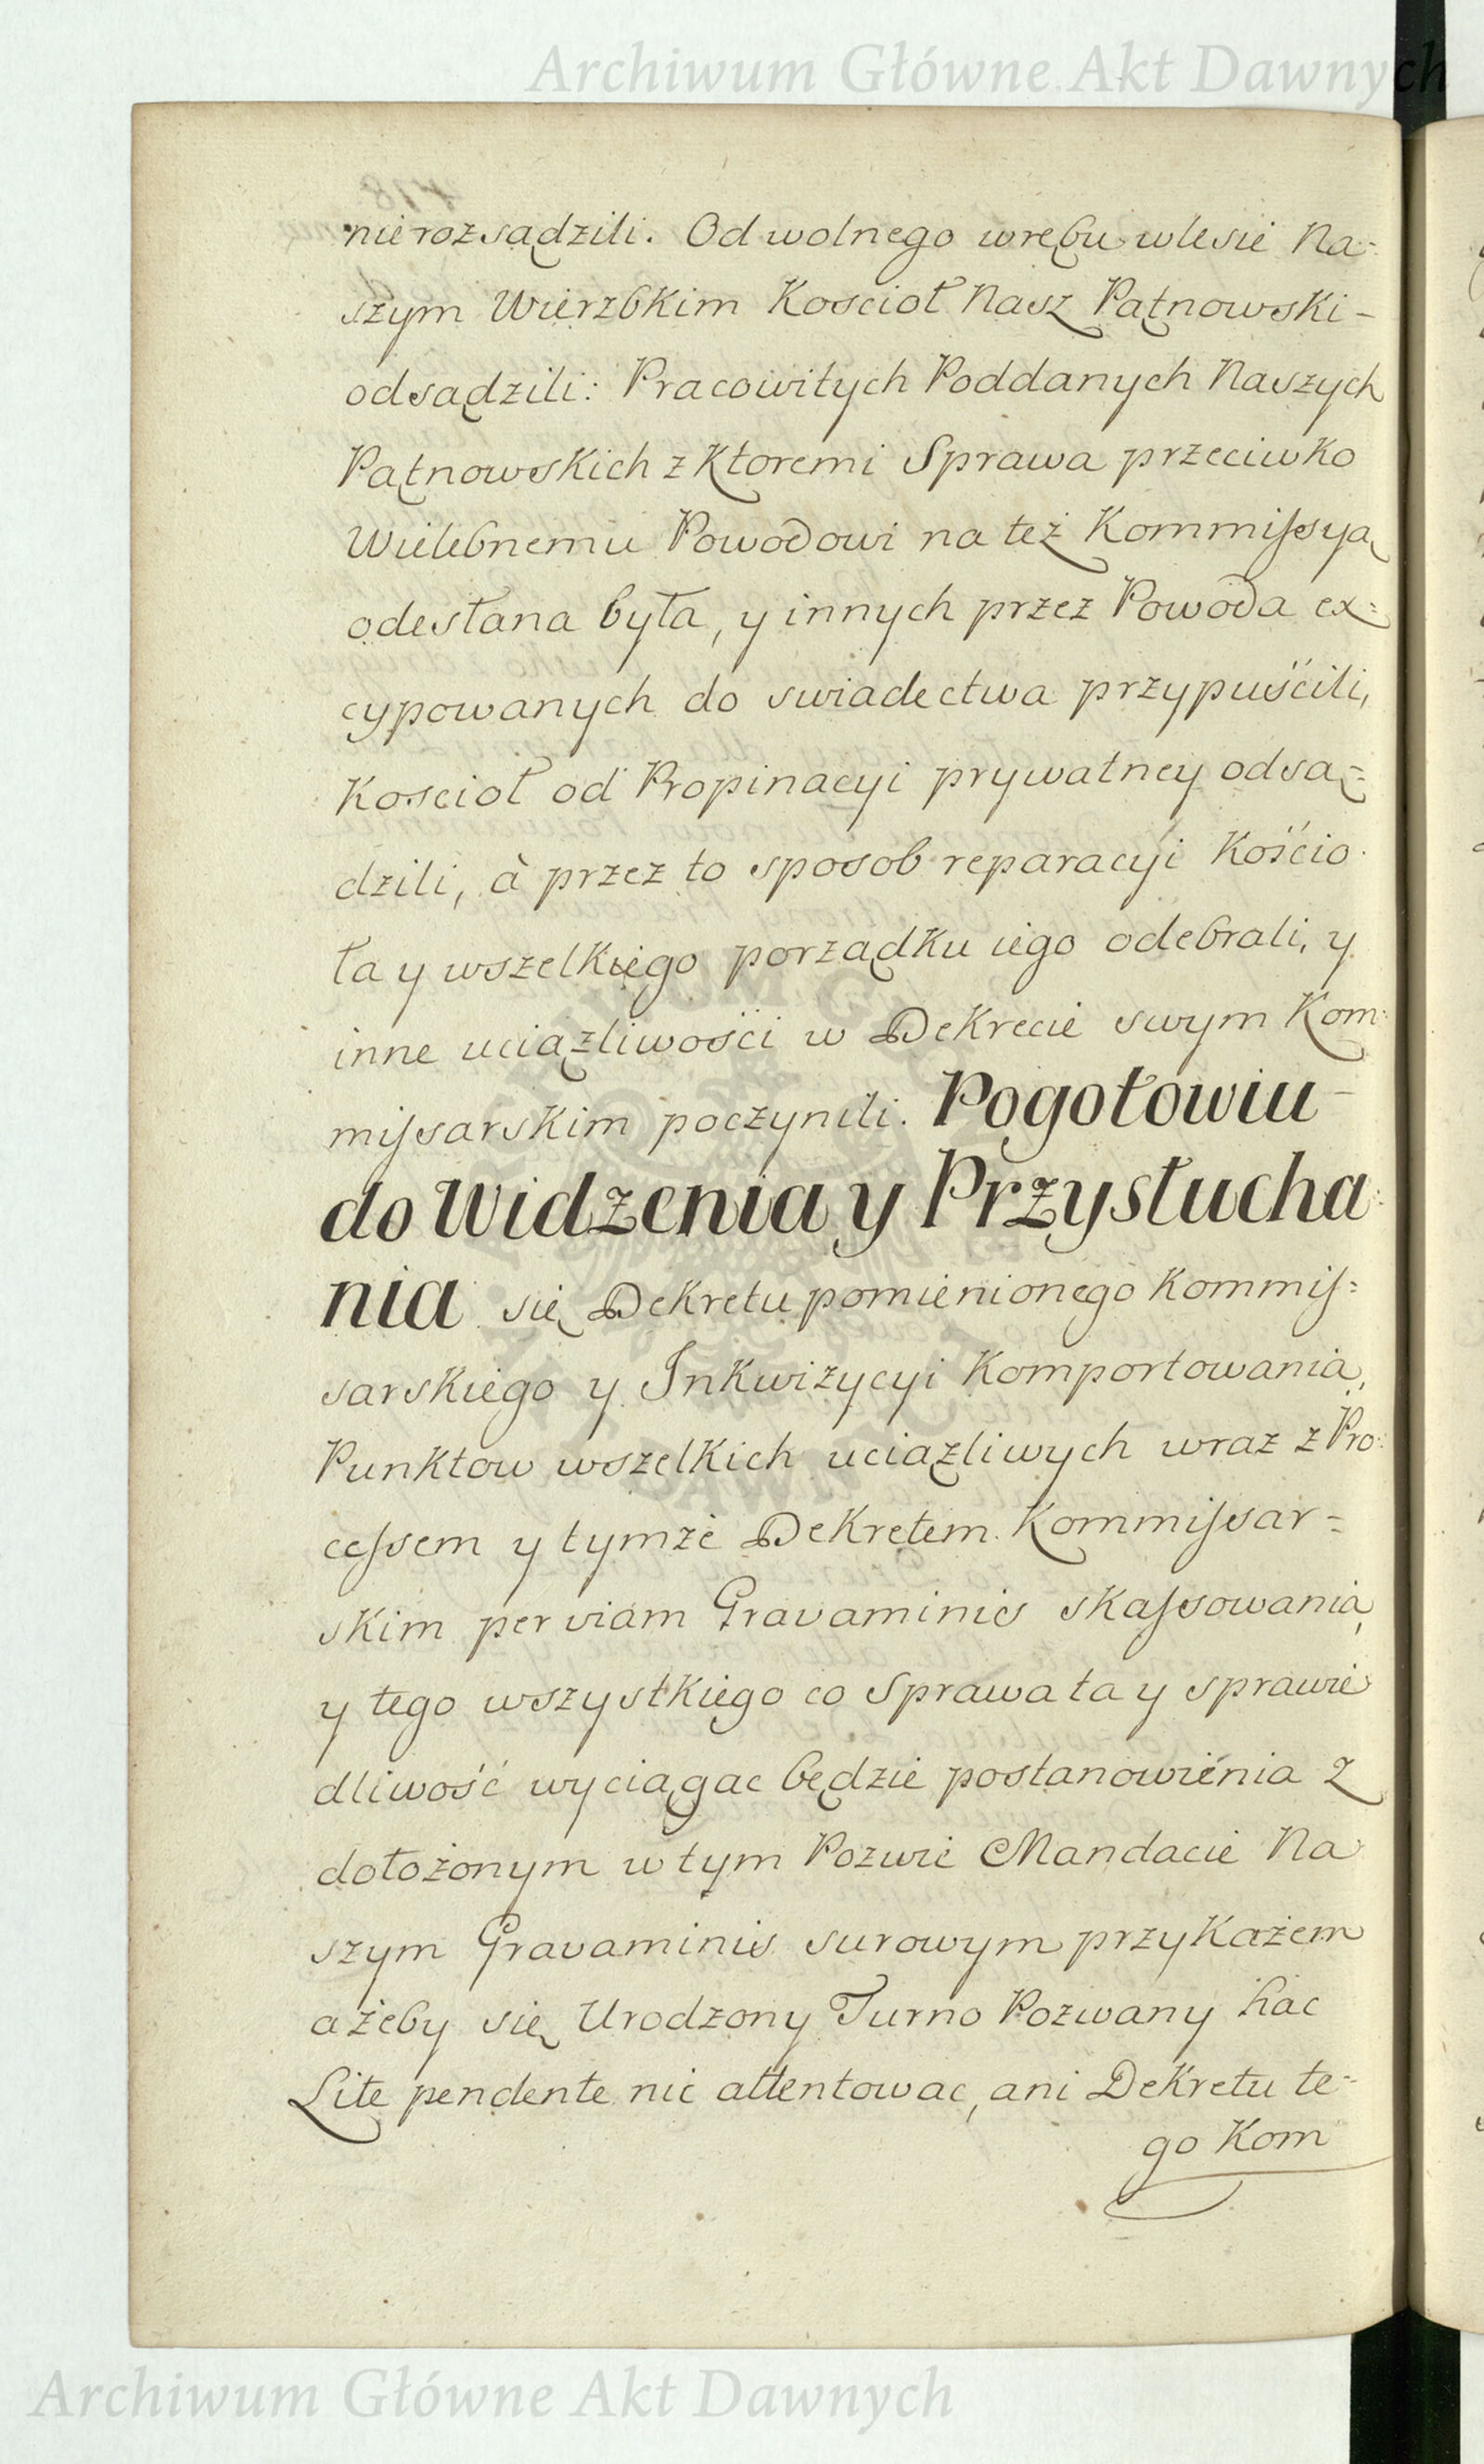 Archiwum Główne Akt Dawnych
nierozsądzili. Od wolnego wrębu wlesie Na=
szym Wierzbkim Kościoł Nasz Pątnowski -
odsądzili: Pracowitych Poddanych Naszych
Pątnowskich z Ktoremi Sprawa przeciwko
Wielebnemu Powodowi na też Kommiſsyą
odesłana była, y innych przez Powoda ex=
cypowanych do swiadectwa przypuścili,
Kościoł od Propinacyi prywatney odsą=
dzili, à przez to sposob reparacyi Kościo
ła y wszelkiego porządku iego odebrali, y
inne uciążliwości w Dekrecie swym Kom=
miſsarskim poczynili. Pogotowiu -
do Widzenia y Przysłucha=
nia się Dekretu pomienionego Kommiſ=
sarskiego y Inkwizycyi Komportowania,
Punktow wszelkich uciążliwych wraz z Pro=
ceſsem y tymże Dekretem Kommiſsar=
skim per viam Gravaminis skaſsowania,
y tego wszystkiego co Sprawa ta y sprawie
dliwość wyciągac będzie postanowienia z
dołożonym w tym Pozwie Mandacie Na
szym Gravaminis surowym przykażem
ażeby się Urodzony Turno Pozwany hac
Lite pendente nic attentowac, ani Dekretu te=
go Kom
Archiwum Główne Akt Dawnych